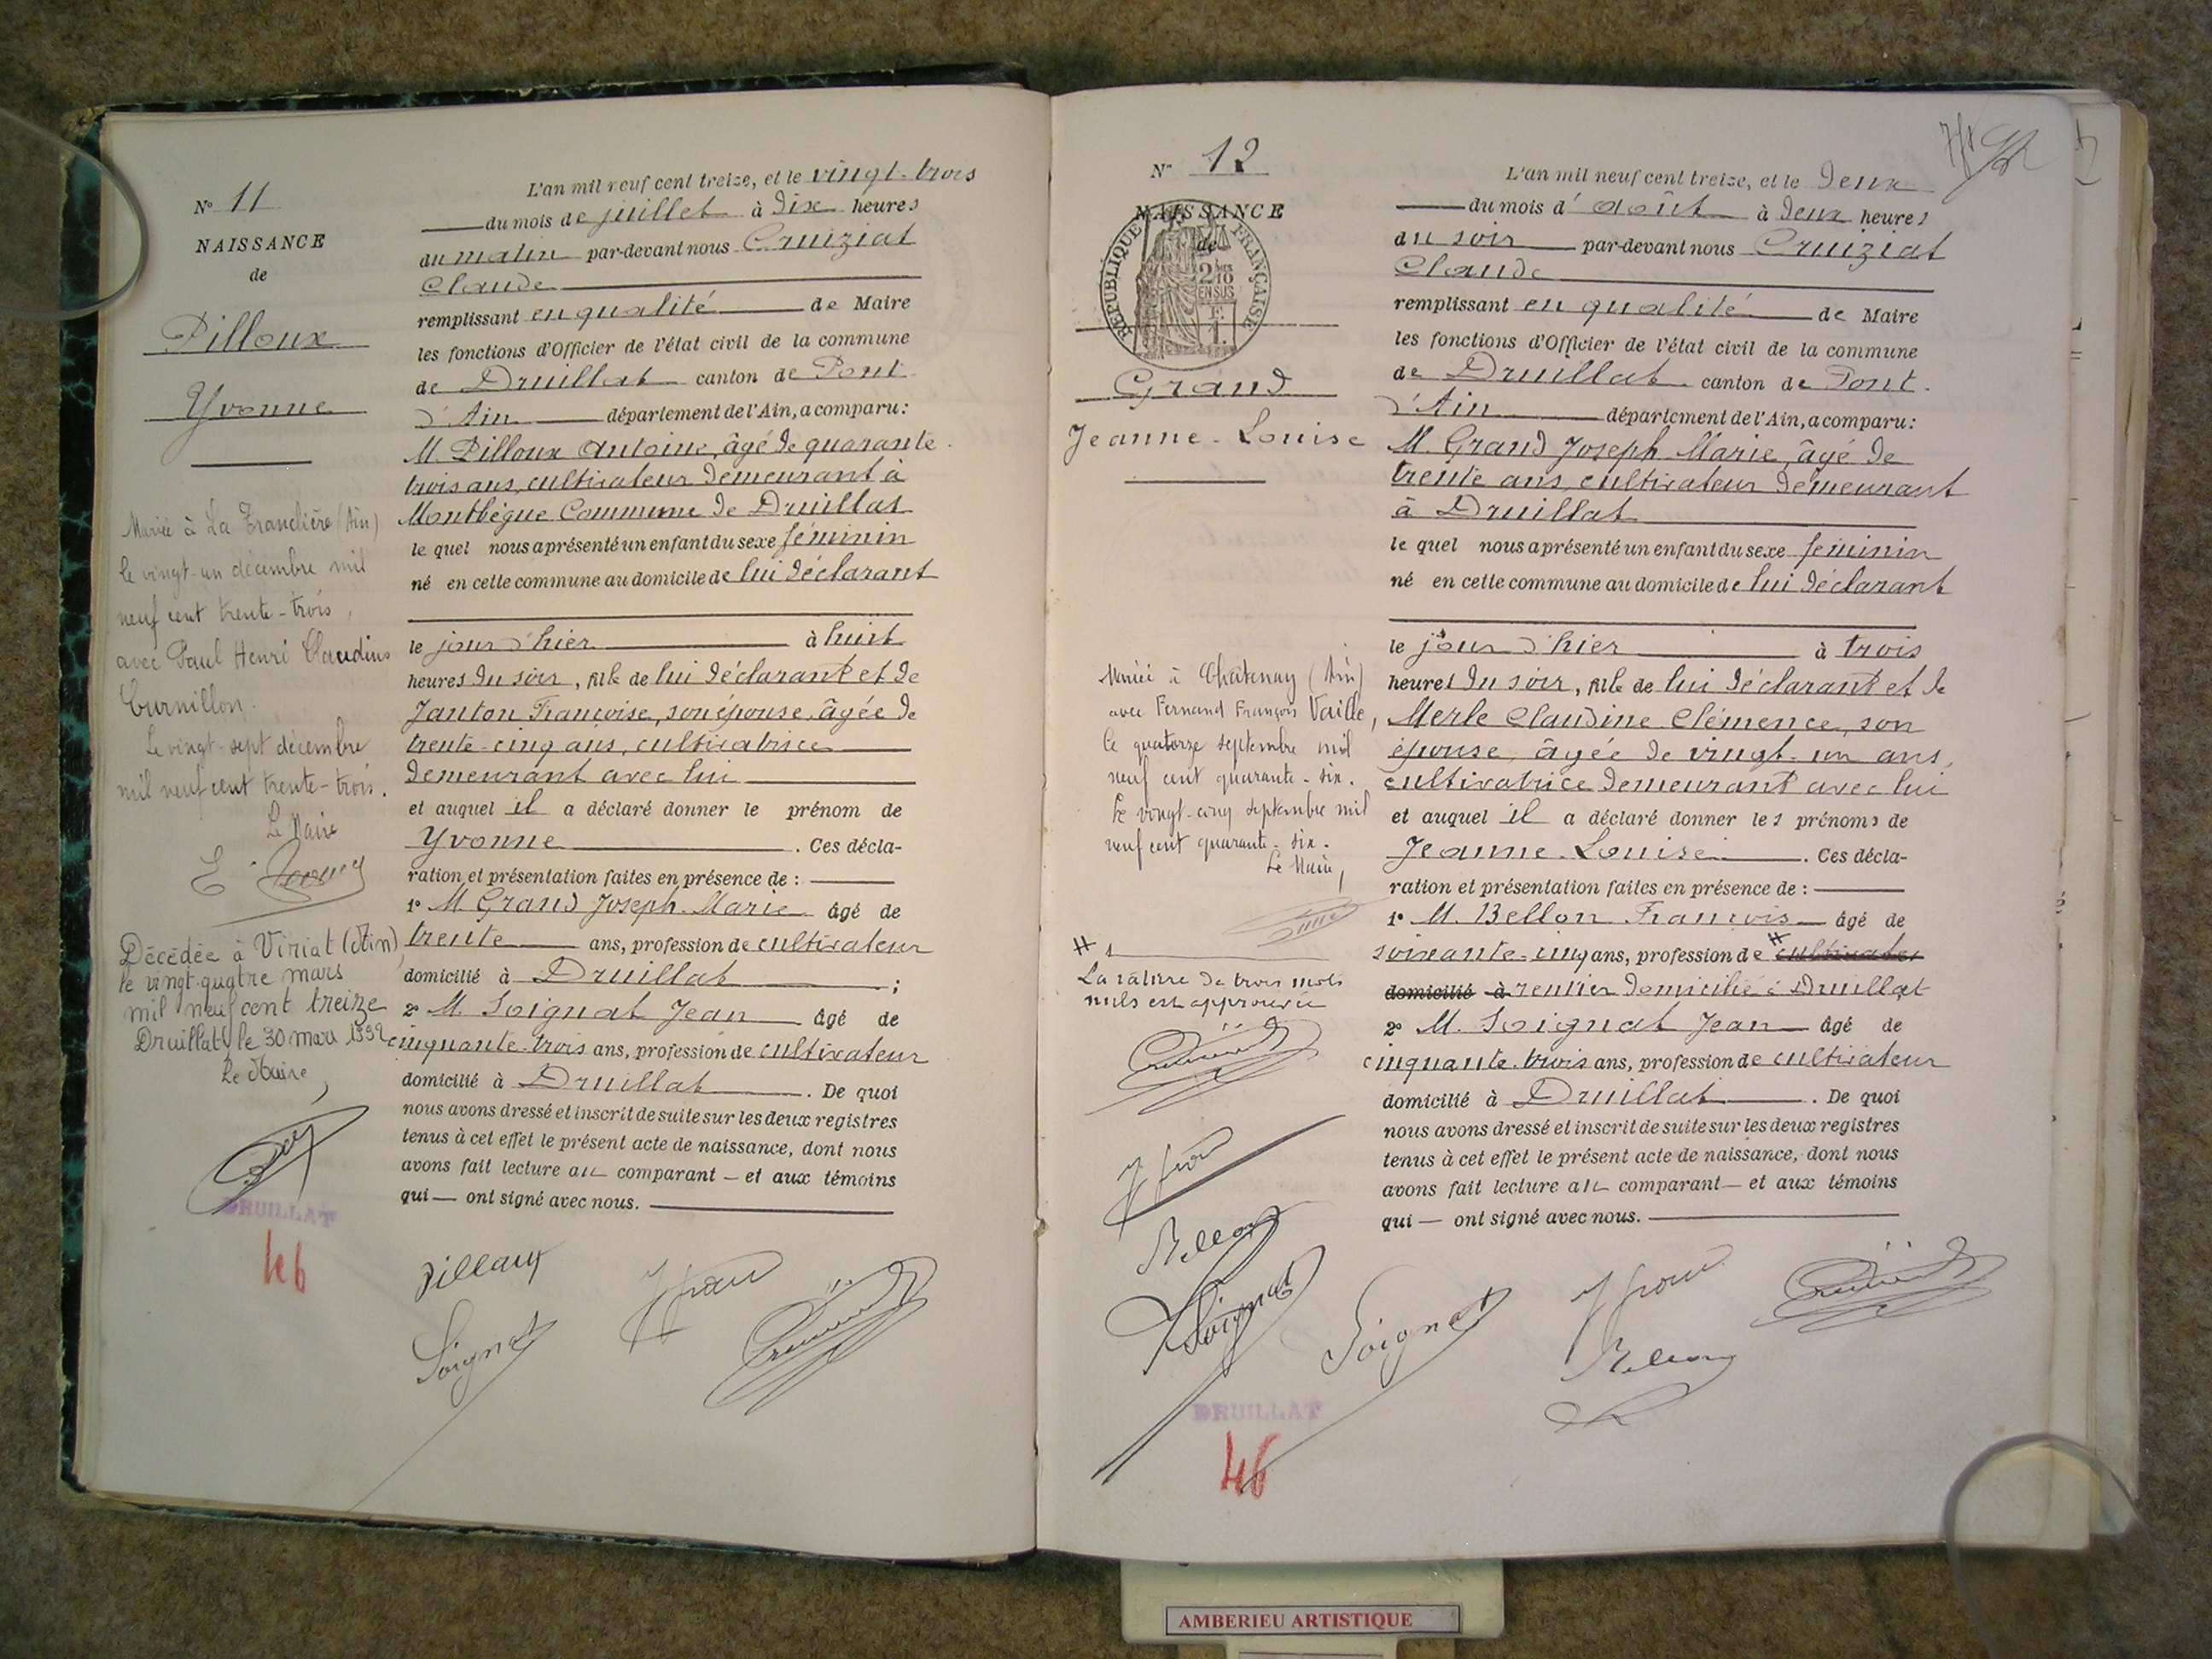 N° 11
NAISSANCE
de
Pilloux
Yvonne
Mariée à La Tranclière (Ain)
le vingt-un décembre mil
neuf cent trente-trois,
avec Paul Henri Claudius
Curnillon.
Le vingt-sept décembre
mil neuf cent trente-trois.
Le Maire
Décédée à Viriat (Ain),
le vingt-quatre mars
mil neuf cent treize
Druillat, le 30 mars 1992
Le Maire,
DRUILLAT
46
L'an mil neuf cent treize, et le vingt-trois
du mois de juillet à dix heures
du matin par-devant nous Cruiziat
Claude
remplissant en qualité de Maire
les fonctions d'Officier de l'état civil de la commune
de Druillat canton de Pont-
d'Ain département de l'Ain, a comparu:
M. Pilloux Antoine, âgé de quarante-
trois ans, cultivateur demeurant à
Montbègue Commune de Druillat
le quel nous a présenté un enfant du sexe féminin
né en cette commune au domicile de lui déclarant
le jour d'hier à huit
heures du soir, fille de lui déclarant et de
Janton Françoise, son épouse, âgée de
trente-cinq ans, cultivatrice
demeurant avec lui
et auquel il a déclaré donner le prénom de
Yvonne. Ces décla-
ration et présentation faites en présence de :
1° M. Grand Joseph-Marie âgé de
trente ans, profession de cultivateur
domicilié à Druillat ;
2° M. Soignat Jean âgé de
cinquante-trois ans, profession de cultivateur
domicilié à Druillat. De quoi
nous avons dressé et inscrit de suite sur les deux registres
tenus à cet effet le présent acte de naissance, dont nous
avons fait lecture au comparant — et aux témoins
qui — ont signé avec nous.
Pilloux
Soignat
N° 12
NAISSANCE
de
RÉPUBLIQUE FRANÇAISE
2/10
EN SUS
Grand
Jeanne-Louise
Mariée à Chatenay (Ain)
avec Fernand François Vaille,
le quatorze septembre mil
neuf cent quarante-six.
Le vingt-cinq septembre mil
neuf cent quarante-six.
Le Maire,
La râture de trois mots
nuls est approuvée
Bellon
Soignat
DRUILLAT
46
L'an mil neuf cent treize, et le deux
du mois d'août à deux heures
du soir par-devant nous Cruiziat
Claude
remplissant en qualité de Maire
les fonctions d'Officier de l'état civil de la commune
de Druillat canton de Pont-
d'Ain département de l'Ain, a comparu:
M. Grand Joseph-Marie, âgé de
trente ans, cultivateur demeurant
à Druillat
le quel nous a présenté un enfant du sexe féminin
né en cette commune au domicile de lui déclarant
le jour d'hier à trois
heures du soir, fille de lui déclarant et de
Merle Claudine Clémence, son
épouse, âgée de vingt-un ans,
cultivatrice demeurant avec lui
et auquel il a déclaré donner les prénoms de
Jeanne-Louise. Ces décla-
ration et présentation faites en présence de :
1° M. Bellon François âgé de
soixante-cinq ans, profession de cultivateur
domicilié à rentier domicilié à Druillat
2° M. Soignat Jean âgé de
cinquante-trois ans, profession de cultivateur
domicilié à Druillat. De quoi
nous avons dressé et inscrit de suite sur les deux registres
tenus à cet effet le présent acte de naissance, dont nous
avons fait lecture au comparant — et aux témoins
qui — ont signé avec nous.
Soignat
Bellon
AMBERIEU ARTISTIQUE